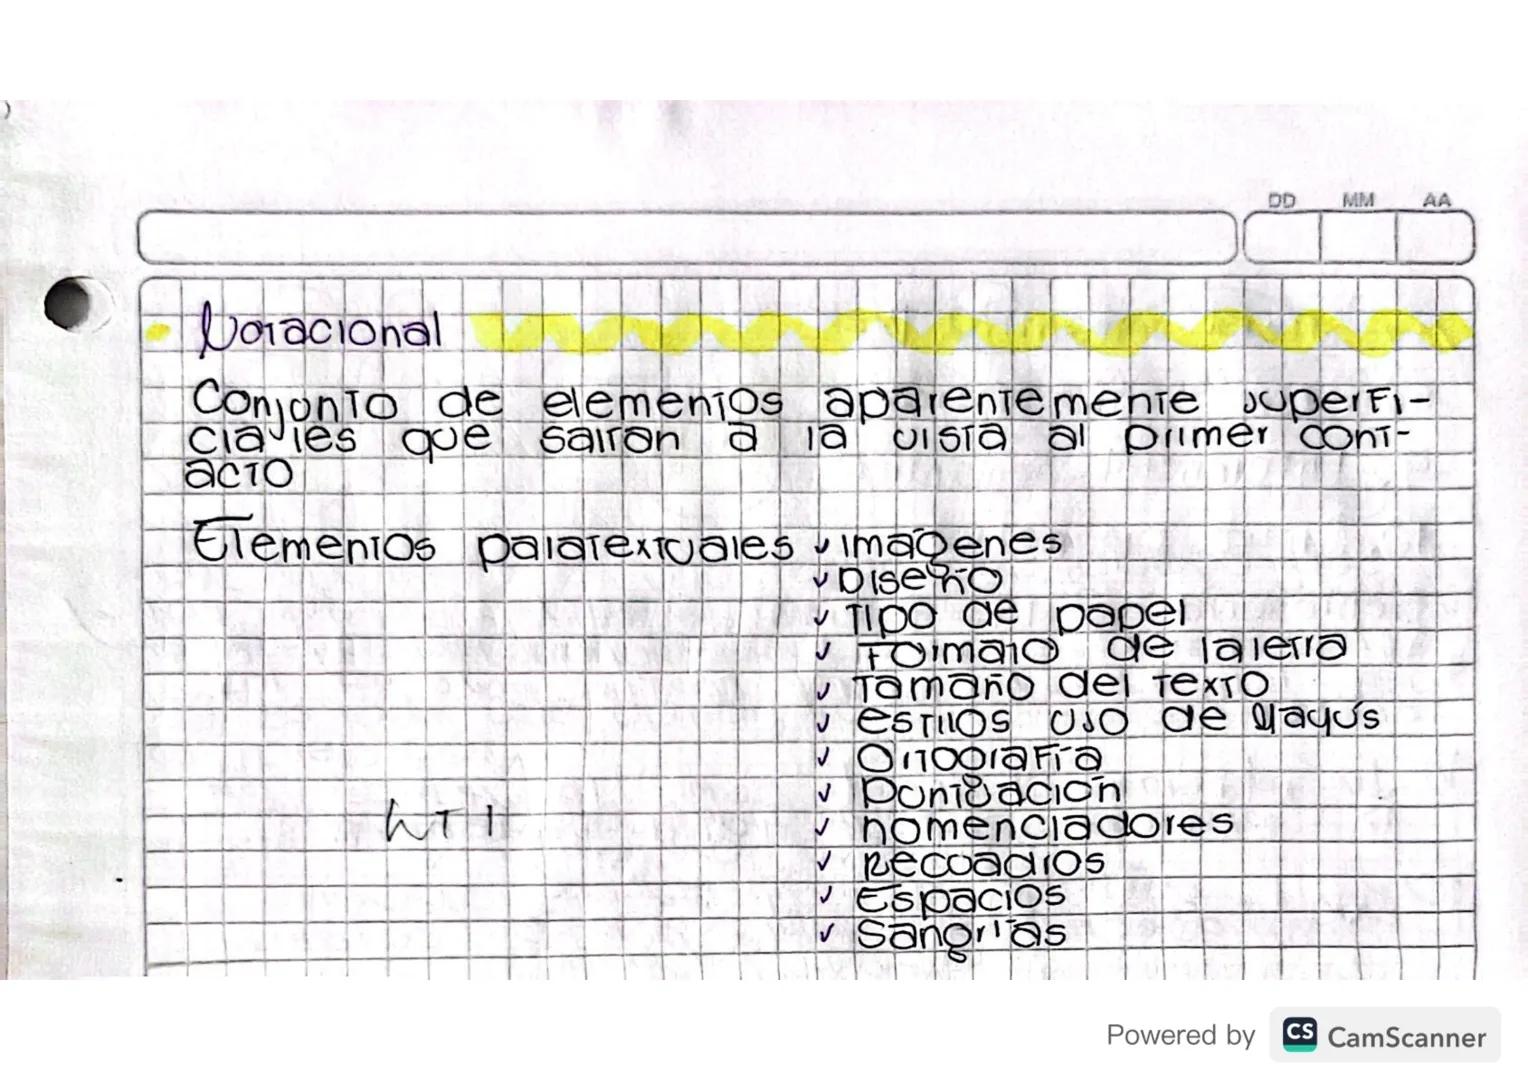 DD MM AA
Notacional
Conjunto de elementos aparentemente superfi-
ciales que saltan a la vista al primer cont-
acto
Elementos paratextuales ✓ imágenes
✓ Diseño
✓ Tipo de papel
✓ Formato de la letra
✓ Tamaño del texto
✓ estilos uso de Mayús
✓ Ortografía
✓ Puntuación
✓ nomencladores
✓ Recuadros
✓ Espacios
✓ Sangrías
Powered by CS CamScanner